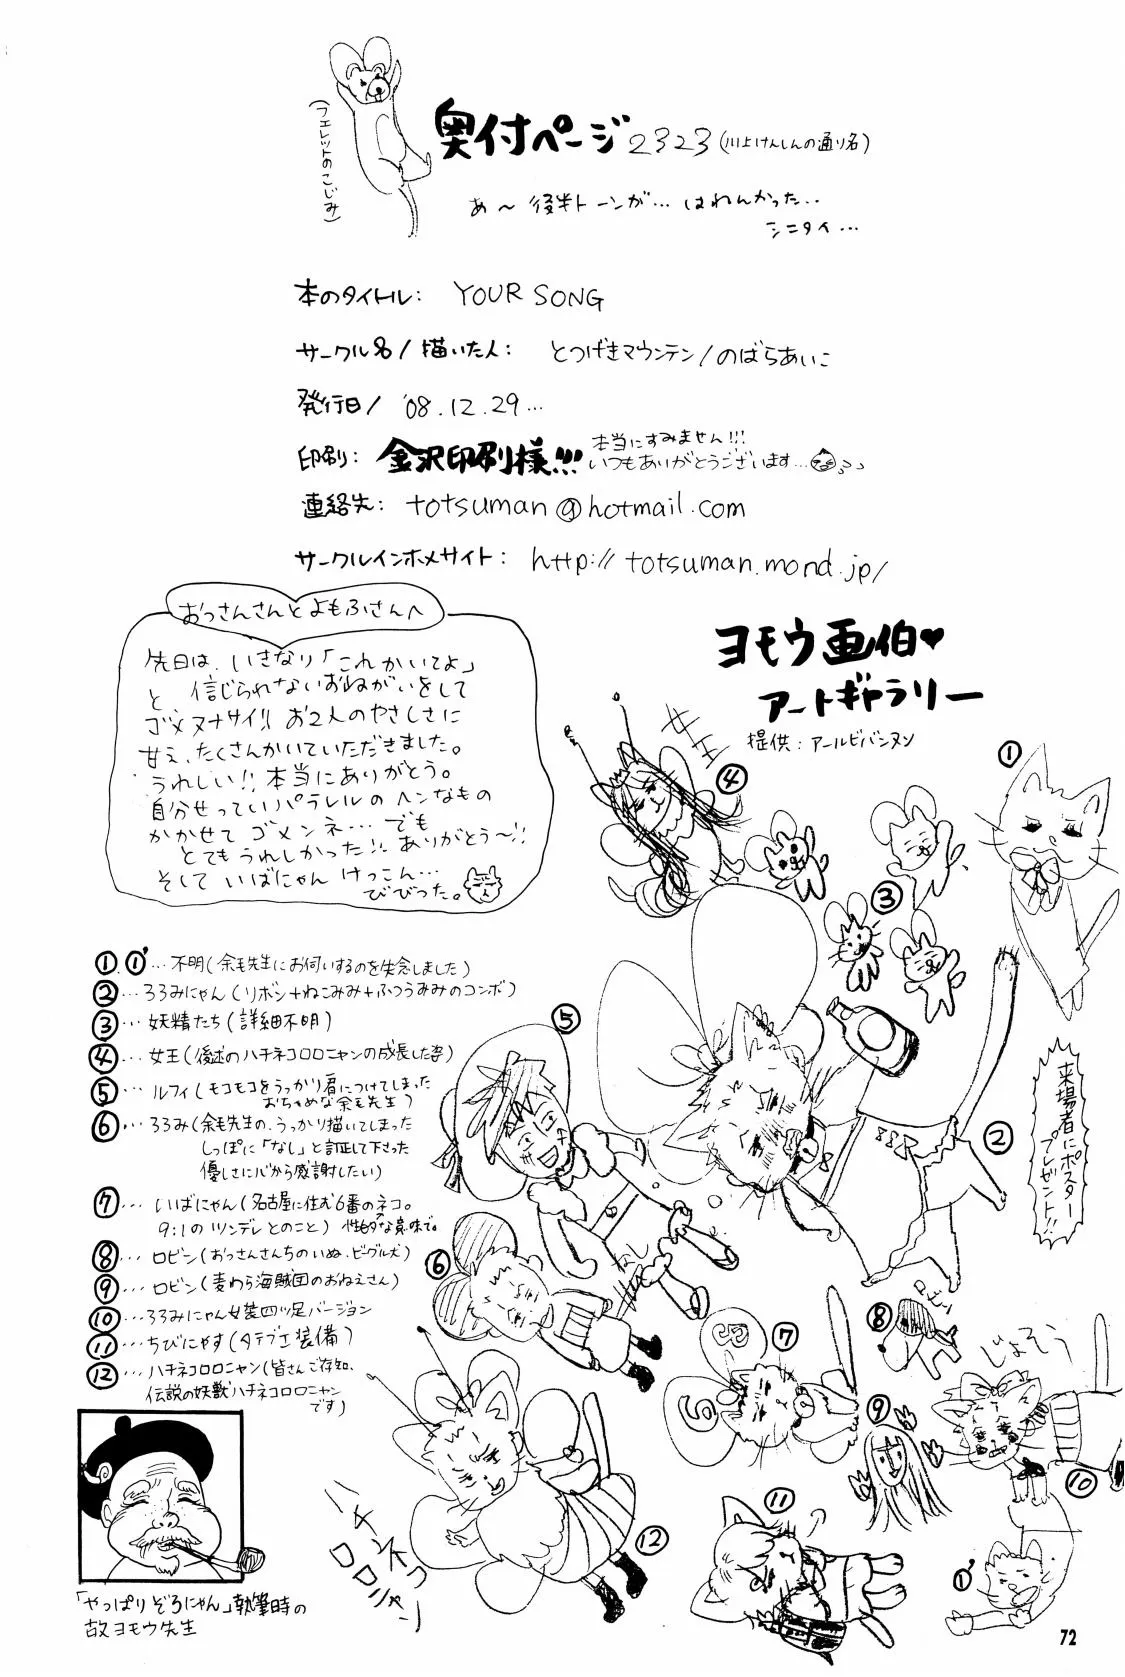 奥付ページ 2323(川上けんしんの通り名)
(フェレットのこじみ)
あ～後半トーンが… はれんかった..
シニタイ…
本のタイトル: YOUR SONG
サークル名/描いた人: とつげきマウンテン/のばらあいこ
発行日/ '08.12.29…
印刷: 金沢印刷様!!!
本当にすみません!!!
いつもありがとうございます…
連絡先: totsuman@hotmail.com
サークルインホメサイト: http://totsuman.mond.jp/
おっさんさんとよもふさんへ
先日は、いきなり「これかいてよ」
と 信じられないおねがいをして
ゴメヌナサイ!! お2人のやさしさに
甘え、たくさんかいていただきました。
うれしい!! 本当にありがとう。
自分せっていパラレルのヘンなもの
かかせて ゴメンネ… でも
とてもうれしかった!! ありがとう～!!
そして いばにゃん けっこん…
びびった。
ヨモウ画伯♥
アートギャラリー
提供:アールビバンヌン
女王
④
①
③
⑤
②
来場者にポスター
プレゼント!!
①,①'…不明(余毛先生にお伺いするのを失念しました)
②…ろろみにゃん(リボン+ねこみみ+ふつうみみのコンボ)
③…妖精たち(詳細不明)
④…女王(後述のハチネコロロニャンの成長した姿)
⑤…ルフィ(モコモコをうっかり君につけてしまった
おちゃめな余毛先生)
⑥…ろろみ(余毛先生の、うっかり描いてしまった
しっぽに「なし」と訂正して下さった
優しさに心から感謝したい)
⑦…いばにゃん(名古屋に住む6番のネコ。
9:1のツンデレとのこと) 性的な意味で。
⑧…ロビン(おっさんさんちのいぬ・ビーグル犬)
⑨…ロビン(麦わら海賊団のおねえさん)
⑩…ろろみにゃん女装四ツ足バージョン
⑪…ちびにゃす(タテブエ装備)
⑫…ハチネコロロニャン(皆さんご存知、
伝説の妖獣ハチネコロロニャン
です)
なし
⑥
ロビン
⑧
じょそう
⑦
6
⑨
⑩
⑪
⑫
ハチネコ
ロロニャン
①'
「やっぱりぞろにゃん」執筆時の
故ヨモウ先生
72